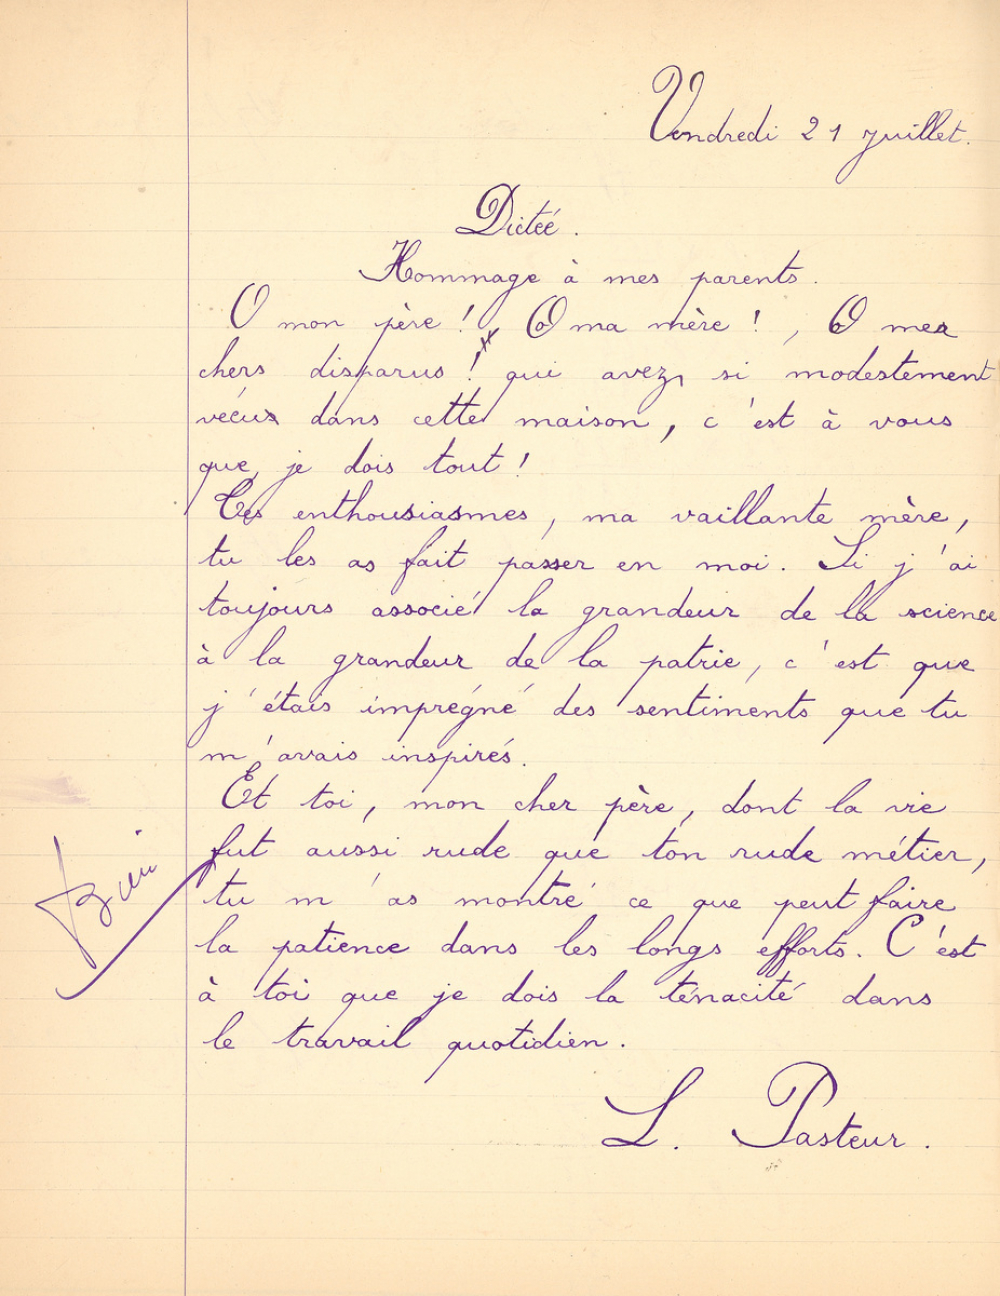 Vendredi 21 juillet.
Dictée.
Hommage à mes parents.
O mon père ! O ma mère ! , O mes
chers disparus ! qui avez, si modestement
vécus dans cette maison, c'est à vous
que, je dois tout !
Tes enthousiasmes, ma vaillante mère,
tu les as fait passer en moi. Si j'ai
toujours associé la grandeur de la science
à la grandeur de la patrie, c'est que
j'étais imprégné des sentiments que tu
m'avais inspirés.
Et toi, mon cher père, dont la vie
fut aussi rude que ton rude métier,
tu m'as montré ce que peut faire
la patience dans les longs efforts. C'est
à toi que je dois la ténacité dans
le travail quotidien.
L. Pasteur.